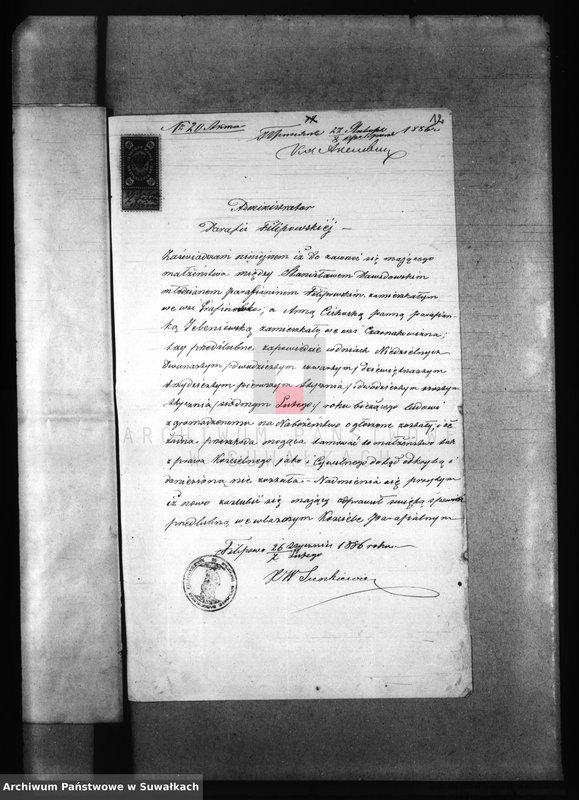 № 20 Akta
27 Января 1886 г
Administrator
Parafii Filipowskiéj —
Zaświadczam niniejszem iż do zawrzeć się mającego
małżeństwa między Stanisławem Dawidowskim
młodzianem parafianinem Filipowskim zamieszkałym
we wsi; a Anną panną parafian
ką Jeleniewską zamieszkałą we wsi Czarnakowizna;
trzy przedślubne zapowiedzie w dniach Niedzielnych
dwunastym/dwudziestym czwartym/dziewiętnastym
trzydziestym pierwszym stycznia/dwudziestym szóstym
stycznia/siódmym Lutego/roku bieżącego ludowi
zgromadzonemu na Nabożeństwo ogłoszone zostały, i że
żadna przeszkoda mogąca tamować to małżeństwo tak
z prawa Kościelnego jako i Cywilnego dotąd odkrytą i
doniesioną nie została. Nadmienia się przytem
iż nowo zaślubić się mający odprawił spowiedź
przedślubną we własnym Kościele parafialnym
Filipowo 26 Stycznia 1886 roku.
7 Lutego
X W Sienkiewicz
ARCHIWUM PAŃSTWOWE
W SUWAŁKACH
Archiwum Państwowe w Suwałkach